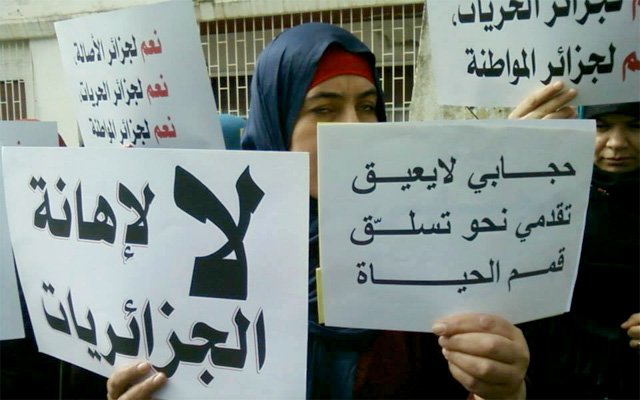 نعم لجزائر الأصالة،
نعم لجزائر الحريات،
نعم لجزائر المواطنة
لجزائر الحريات،
لجزائر المواطنة
حجابي لايعيق
تقدمي نحو تسلّق
قمم الحياة
لا لإهانة
الجزائريات